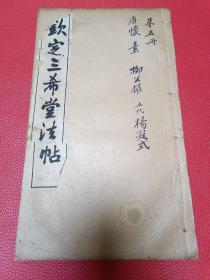 欽定三希堂法帖
第五冊
唐懷素 柳公權 五代楊凝式